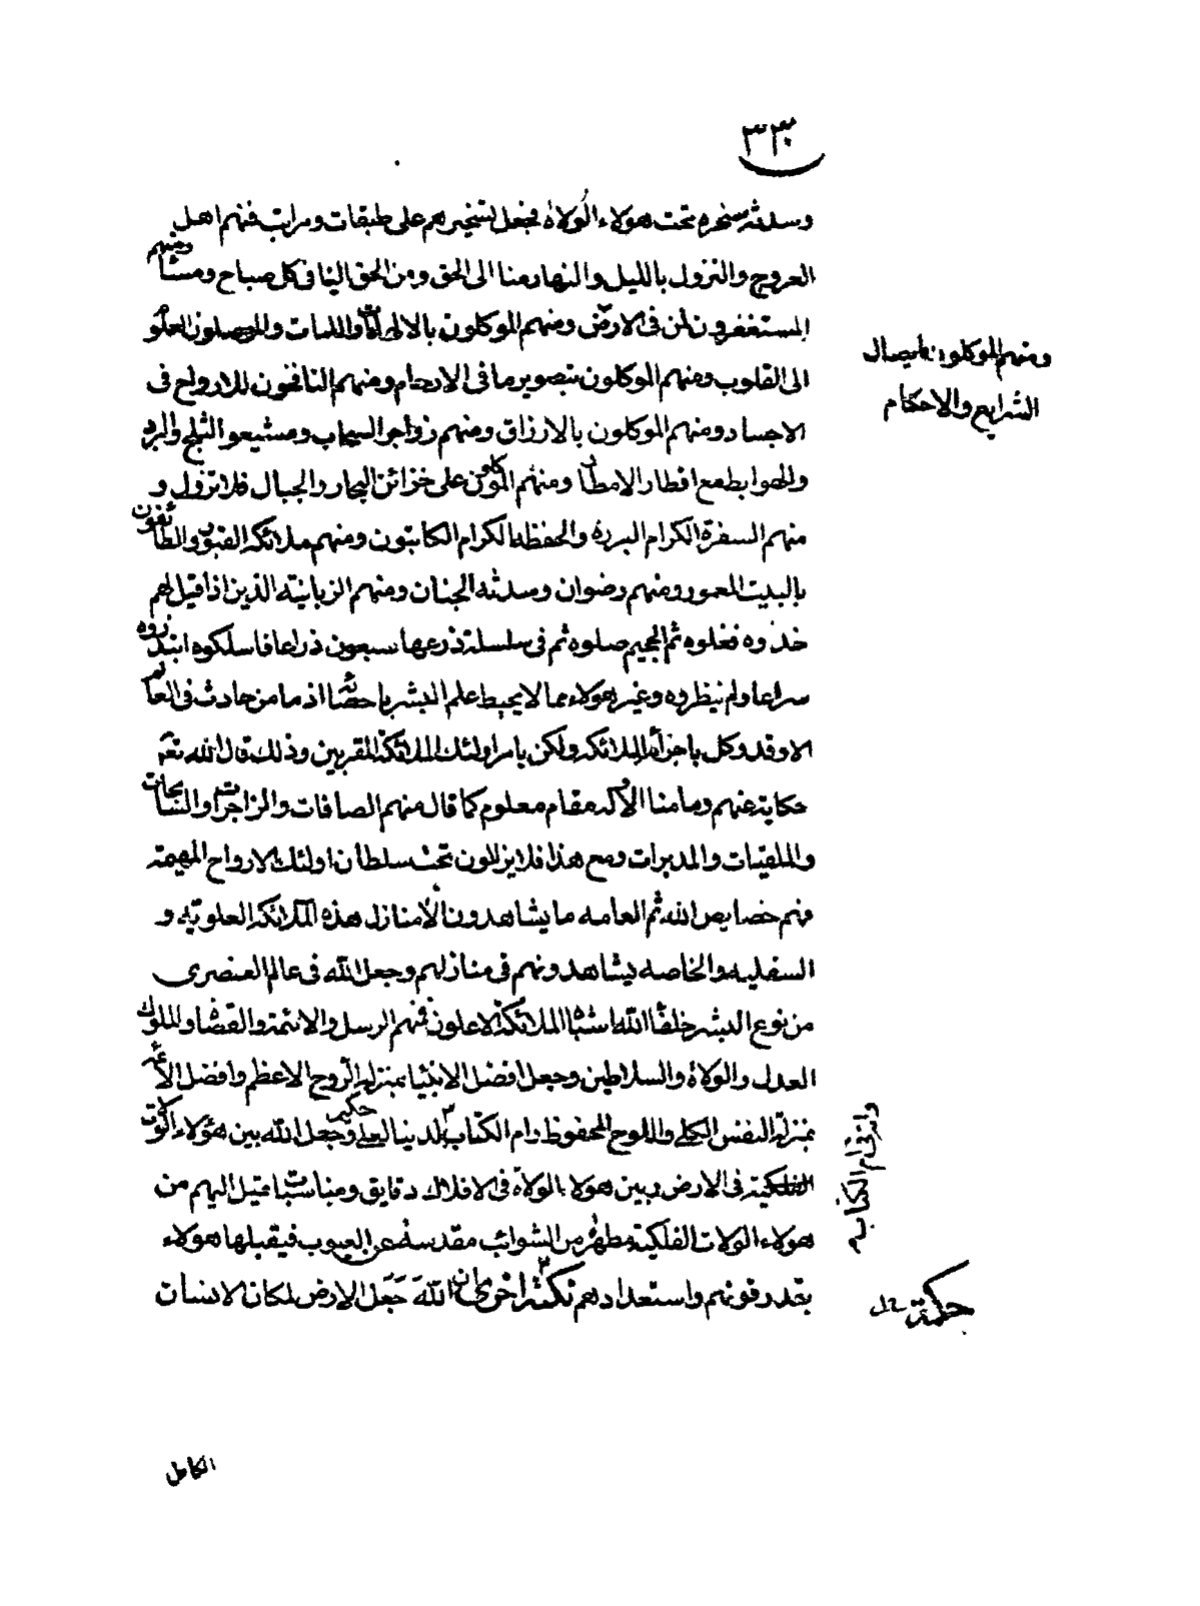 ٣٣٠
وسدنته مسخره تحت هولاء الولاة فجعل تسخيرهم على طبقات ومراتب فمنهم اهل
العروج والنزول بالليل والنهار منا الى الحق ومن الحق الينا فى كل صباح ومسا ومنهم
المستغفرون لمن فى الارض ومنهم الموكلون بالالهامات واللمات والموصلون العلوم
الى القلوب ومنهم الموكلون بتصوير ما فى الارحام ومنهم النافخون للارواح فى
الاجساد ومنهم الموكلون بالارزاق ومنهم زواجر السحاب ومشيعوا الثلج والبرد
والهوابط مع اقطار الامطار ومنهم الموكلون على خزائن البحار والجبال فلا تزول و
منهم السفرة الكرام البررة والحفظه الكرام الكاتبون ومنهم ملائكه القبور والطائفون
بالبيت المعمور ومنهم رضوان وسدنه الجنان ومنهم الزبانيه الذين اذا قيل لهم
خذوه فغلوه ثم الجحيم صلوه ثم فى سلسلة ذرعها سبعون ذراعا فاسلكوه ابتدروه
سراعا ولم ينظروه وغير هولاء مما لا يحيط علم البشر باحصائه اذ ما من حادث فى العالم
الا وقد وكل باجرائه الملائكه ولكن بامر اولئك الملائكة المقربين وذلك قال الله تعه
حكاية عنهم وما منا الا وله مقام معلوم كما قال منهم الصافات والزاجرات والسابحات
والملقيات والمدبرات ومع هذا فلا يزالون تحت سلطان اولئك الارواح المهيمة
فهم خصايص الله ثم العامه ما يشاهدون الا منازل هذه الملائكه العلويه و
السفليه والخاصه يشاهدونهم فى منازلهم وجعل الله فى عالم العنصرى
من نوع البشر خلقا الله اشباه الملائكة الاعلون فمنهم الرسل والائمة والقضاة والملوك
العدل والولاة والسلاطين وجعل افضل الانبيا بمنزله الروح الاعظم وافضل الائمه
بمنزلة النفس الكلى واللوح المحفوظ وام الكتاب لدينا لعلى حكيم وجعل الله بين هؤلاء الولات
الفلكية فى الارض وبين هولاء الولاة فى الافلاك دقايق ومناسبات تميل اليهم من
هولاء الولات الفلكية مطهره من الشوائب مقدسه عن العيوب فيقبلها هولاء
بقدر قوتهم واستعدادهم نكتة اخرى ان الله جعل الارض لمكان الانسان
ومنهم الموكلون بايصال
الشرايع والاحكام
وانه فى ام الكتاب م
حكمة خ ل
الكامل